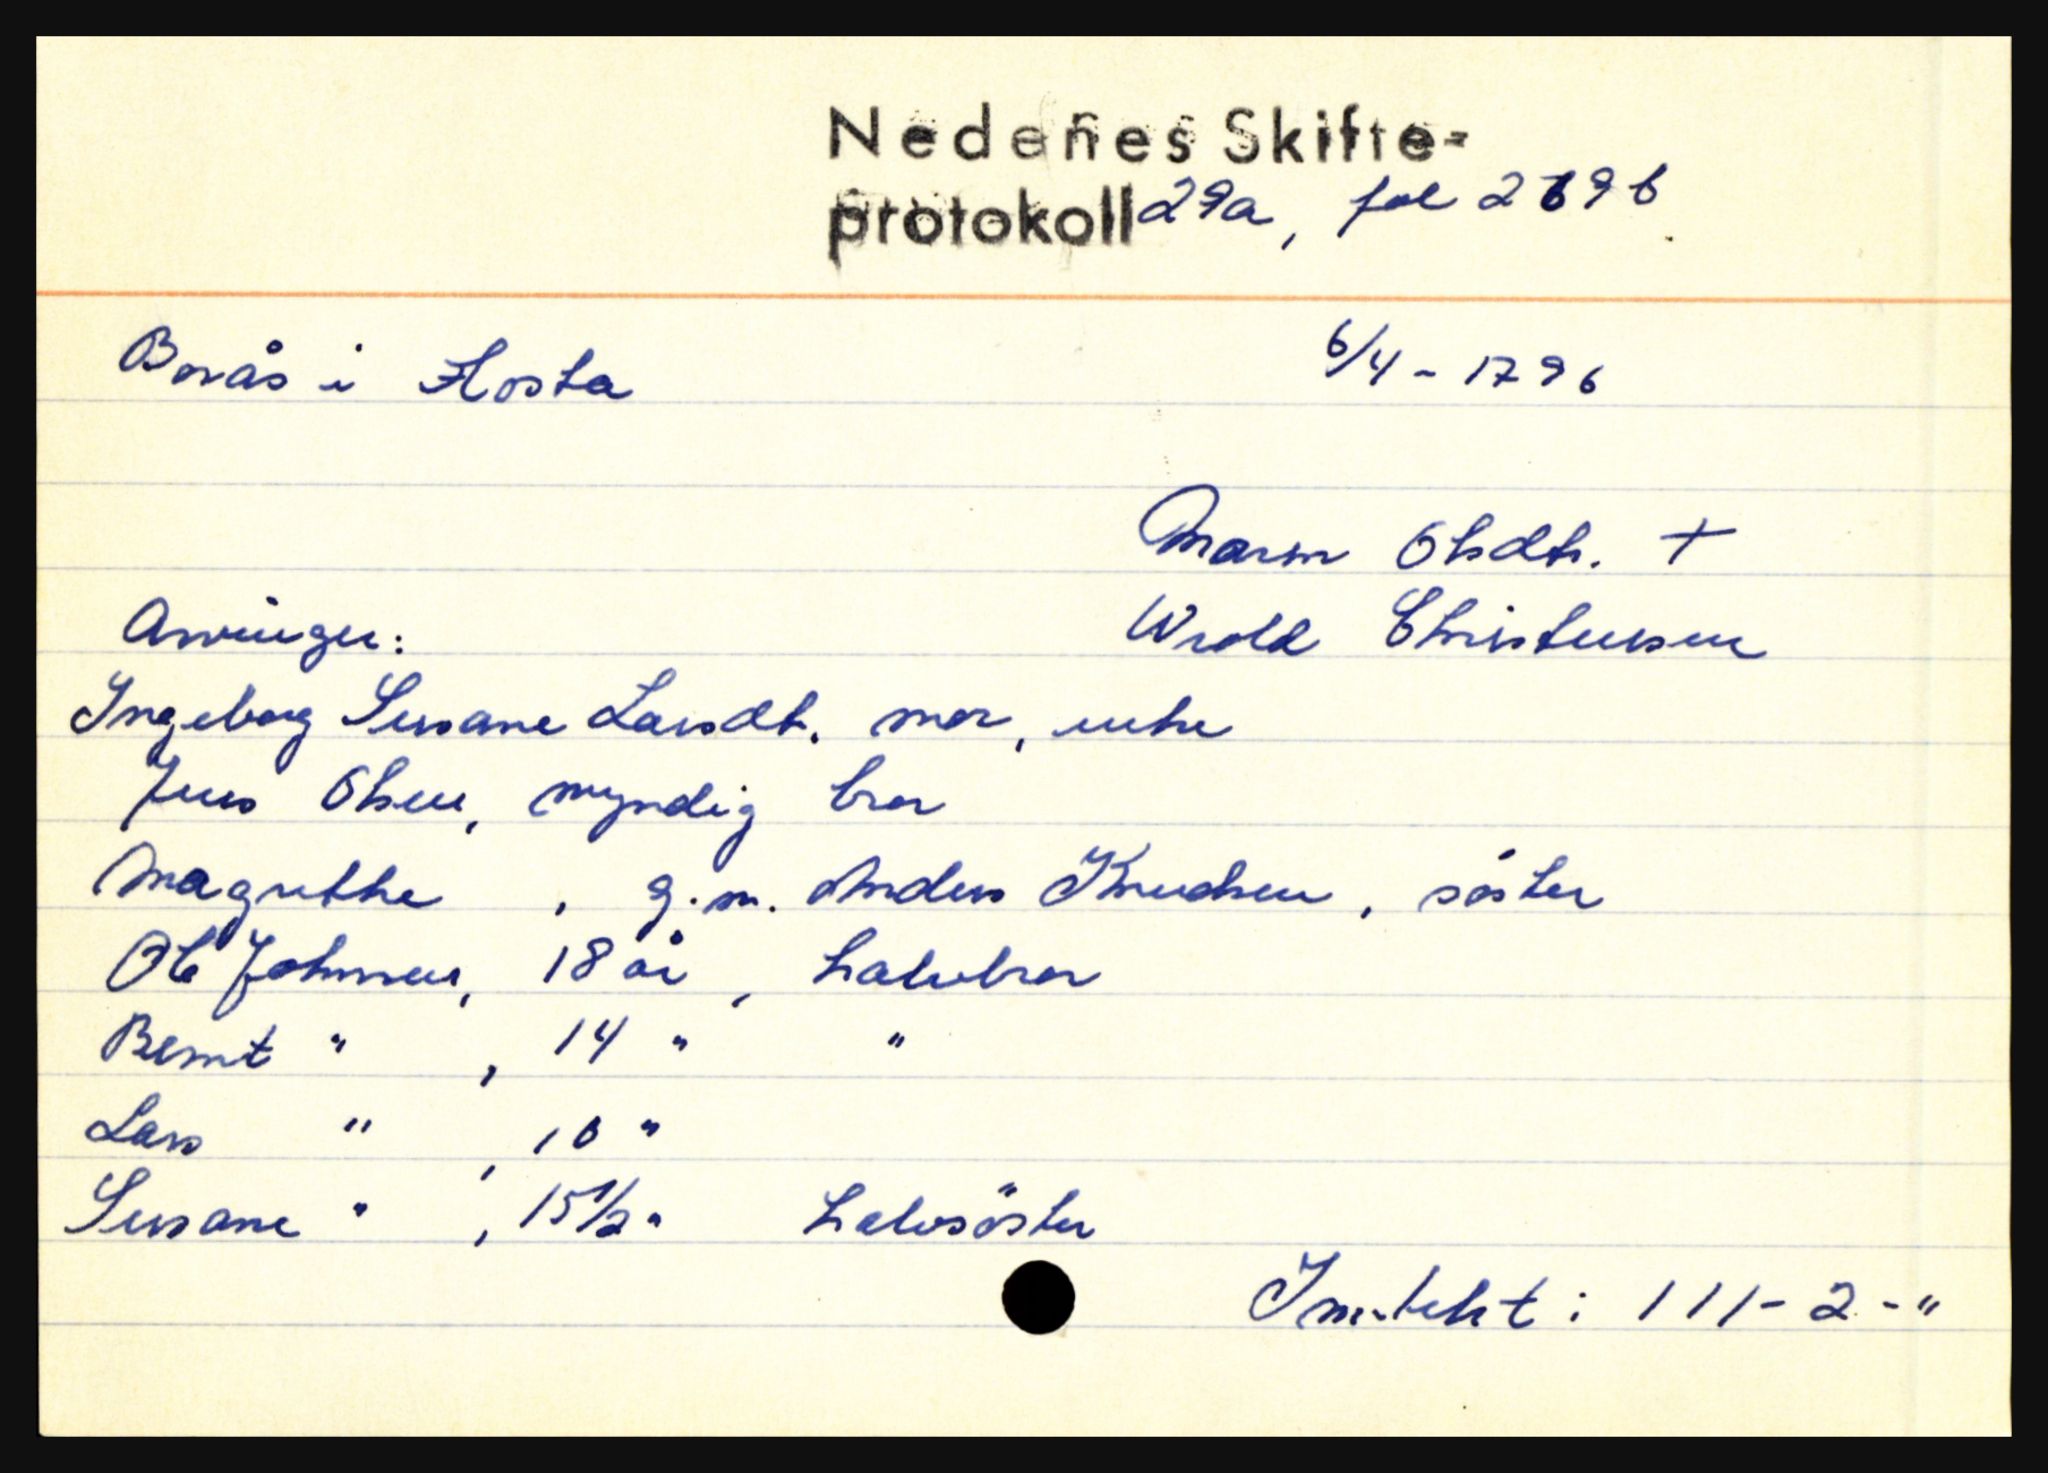 Nedenes Skifte-
protokoll 29a, fol 269 b
Borås i Flosta
6/4 - 1796
Maren Olsdt. +
Wrold Christensen
Arvinger:
Ingeborg Susane Larsdt. mor, enke
Jens Olsen, myndig bror
Magrethe , g.m. Anders Knudsen, søster
Ole Johnsen, 18 år, halvbror
Bernt " , 14 " "
Lars " , 10 "
Susane " , 15 1/2 " halvsøster
Inntekt: 111-2-"